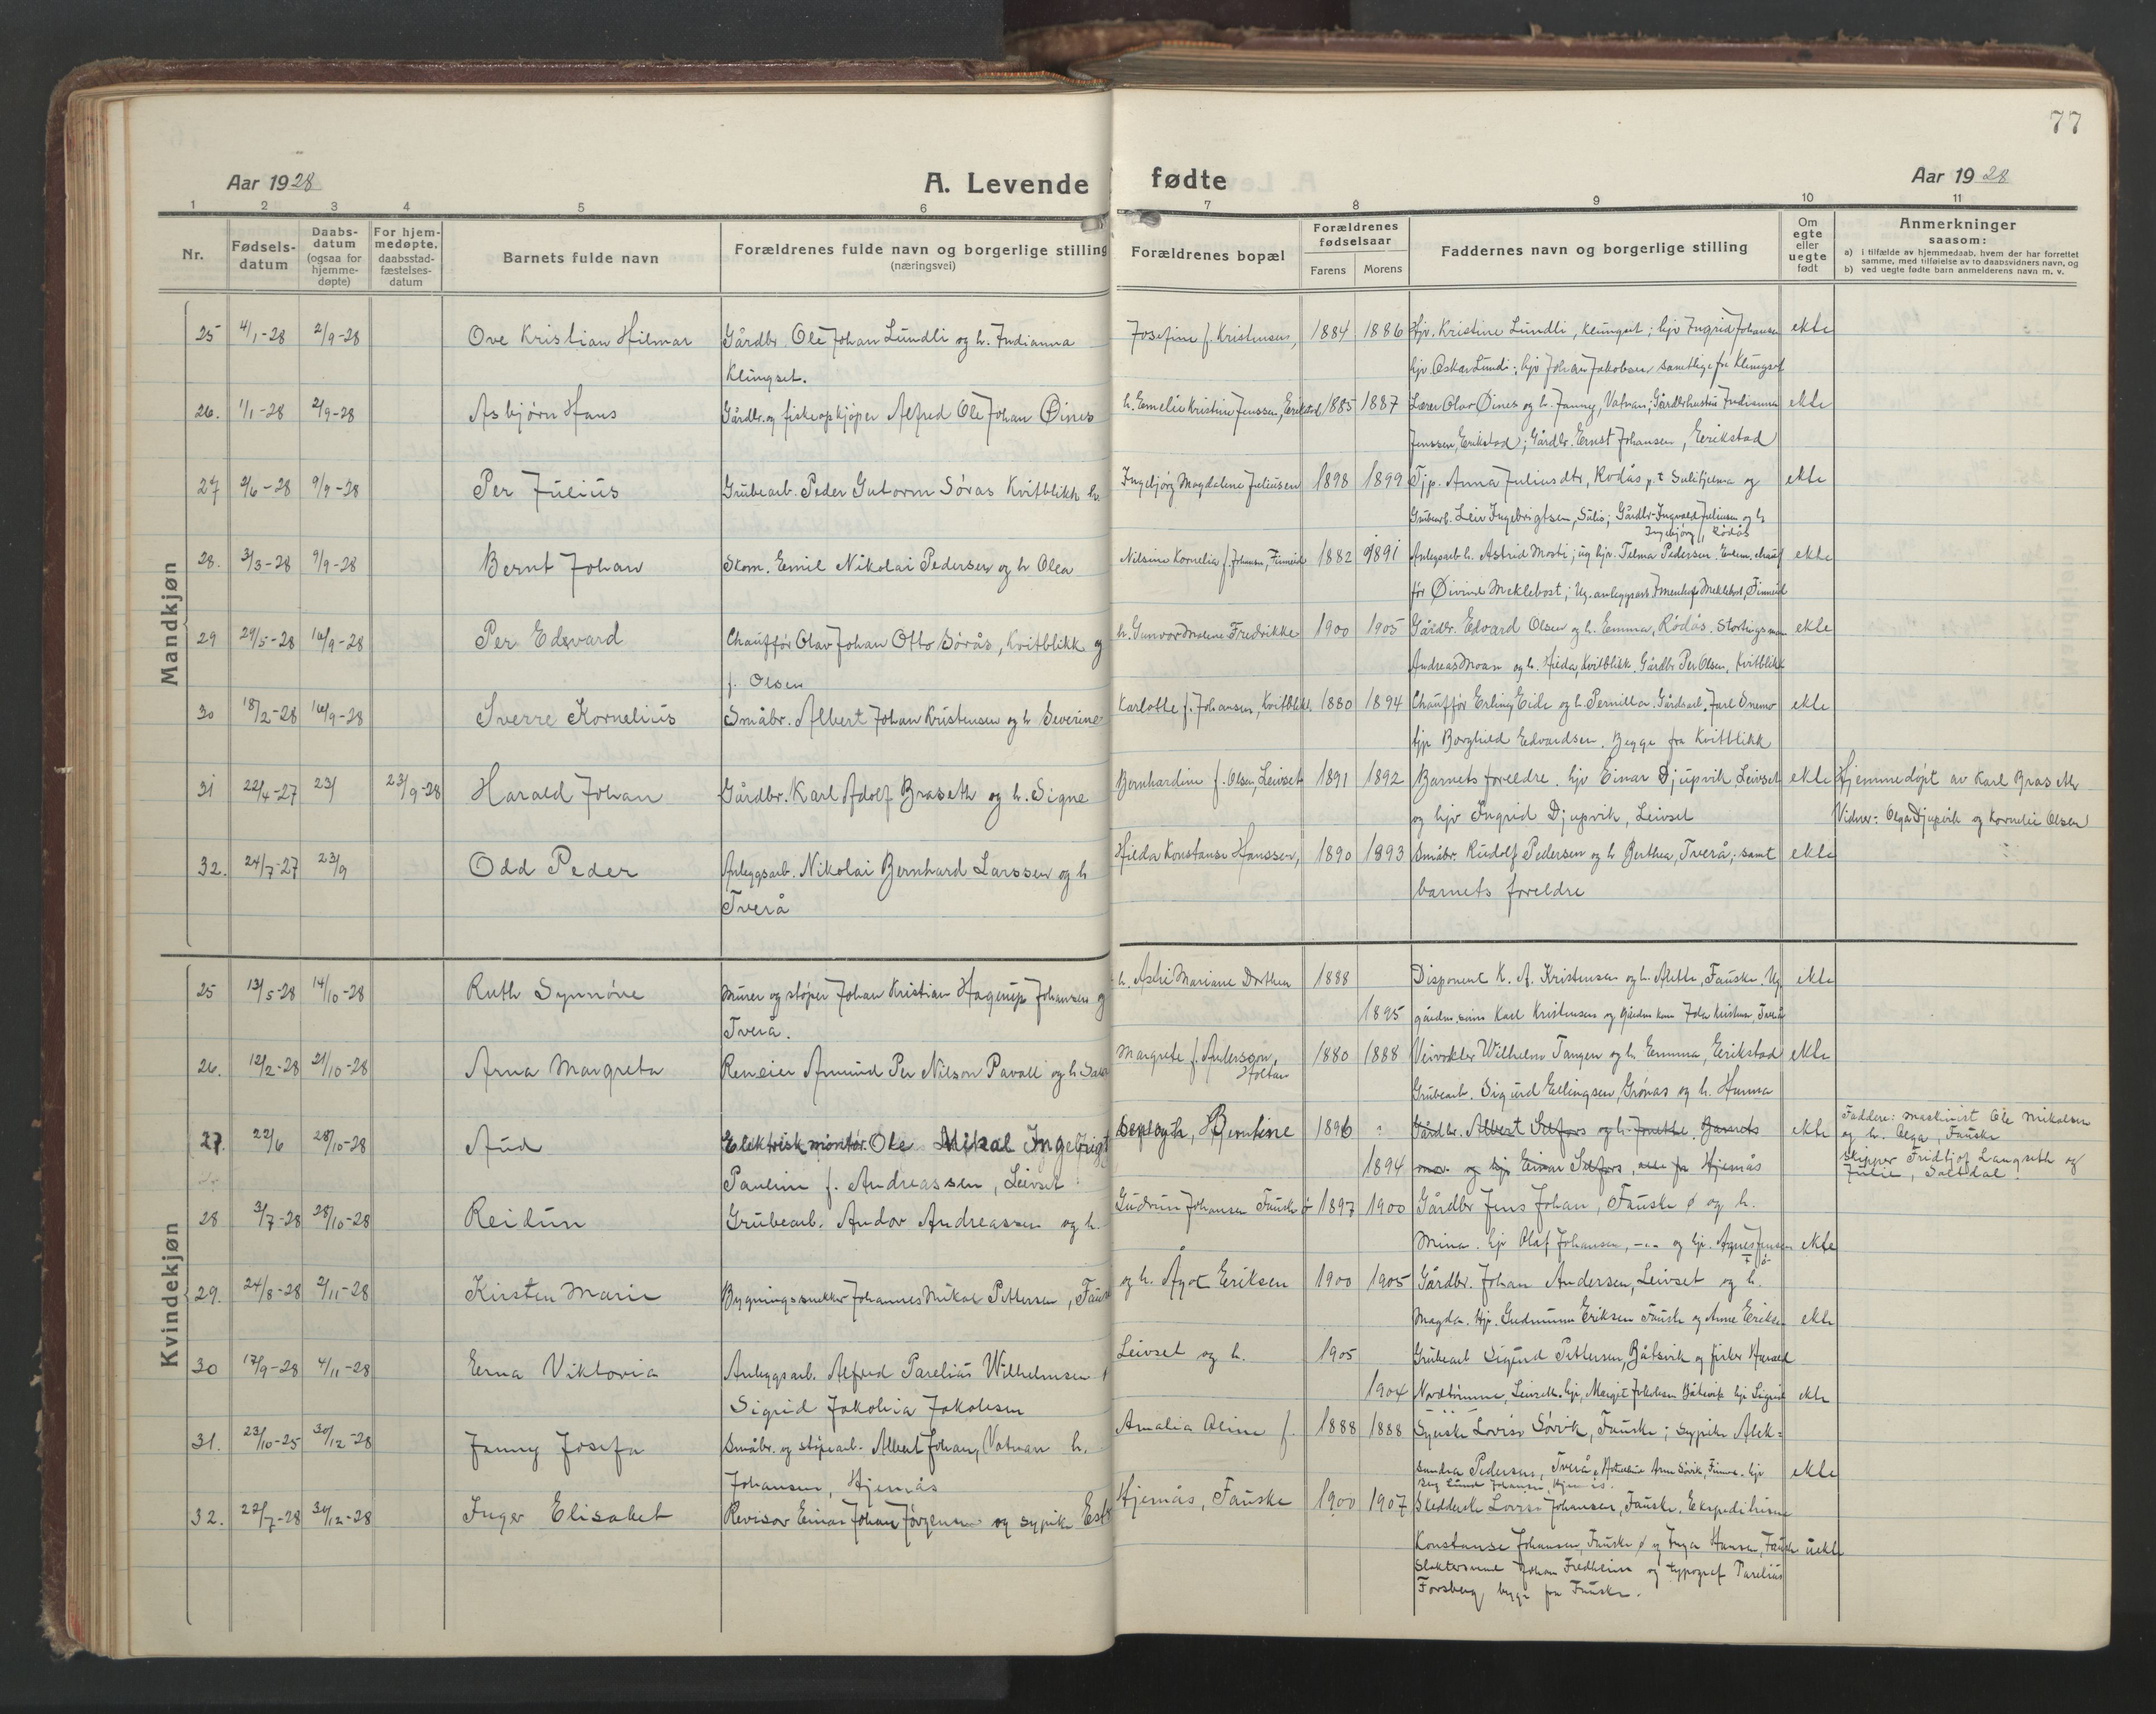 77
Aar 1928
A. Levende fødte
Aar 1928
1 2 3 4 5 6 7 8 9 10 11
Nr.
Fødsels-
datum
Daabs-
datum
(ogsaa for
hjemme-
døpte)
For hjem-
medøpte,
daabsstad-
fæstelses-
datum
Barnets fulde navn
Forældrenes fulde navn og borgerlige stilling
(næringsvei)
Forældrenes bopæl
Forældrenes
fødselsaar
Farens Morens
Faddernes navn og borgerlige stilling
Om
egte
eller
uegte
født
Anmerkninger
saasom:
a) i tilfælde av hjemmedaab, hvem der har forrettet
samme, med tilføielse av to daabsvidners navn, og
b) ved uegte fødte barn anmelderens navn m. v.
Mandkjøn
25 4/1-28 2/9-28 Ove Kristian Hilmar Gårdbr. Ole Johan Lundli og h. Indianna Josefine f. Kristensen, 1884 1886 Hjv. Kristine Lundli, Klungset; hjv Ingrid Johansen ekte
Klungset. hjv. Oskar Lundi; hjv Johan Jakobsen samtlige fra Klungset
26. 1/1-28 2/9-28 Asbjørn Hans Gårdbr. og fiskeopkjøper Alfred Ole Johan Øines h. Emelie Kristine Jenssen, Erikstad 1885 1887 Lærer Olav Øines og h. Janny, Vatnan; Gårdbrhustru Indianna ekte
Jenssen, Erikstad; Gårdbr. Ernst Johansen, Erikstad
27 2/6-28 9/9-28 Per Julius Grubearb. Peder Gutorm Sørås Kvitblikk h. Ingebjørg Magdalene Juliussen 1898 1899 Tjp. Anna Juliusdtr, Rødås p.t Sulitjelma og ekte
Grubearb. Leiv Ingebrigtsen, Sulis; Gårdbr. Ingvald Juliussen og h
Ingebjørg, Rødås
28. 3/3-28 9/9-28 Bernt Johan Skom. Emil Nikolai Pedersen og h Olea Nilsine Kornelia f. Johansen, Finneid 1882 1891 Anlegsarb h. Astrid Mosti; ug hjv. Telma Pedersen. ekte
før Øivind Meklebost; Ug. anleggsarb Meklebost, Finneid
29 29/5-28 16/9-28 Per Edvard Chauffør Olav Johan Otto Sørås, Kvitblikk og h. Gunvor Malene Fredrikke 1900 1905 Gårdbr. Edvard Olsen og h. Emma, Rödås. Stortingsman ekte
f. Olsen Andreas Moan og h. Hilda, Kvitblikk. Gårdbr Per Olsen, Kvitblikk
30 18/2-28 16/9-28 Sverre Kornelius Småbr. Albert Johan Kristensen og h Severine Karlotte f. Johansen, Kvitblikk. 1880 1894 Chauffør Erling Eide og h. Pernilla. Gårdsarb. Jarl Snemo ekte
tjp Borghild Edvardsen. Begge fra Kvitblikk
31 22/4-27 23/ 23/9-28 Harald Johan Gårdbr. Karl Adolf Braseth og h. Signe Bernhardine f. Olsen, Leivset 1891 1892 Barnets foreldre. hjv Einar Djupvik Leivset ekte Hjemmedøpt av Karl Braseth
og hjv Ingrid Djupvik, Leivset Vidner: Olga Djupvik og Kornelie Olsen
32. 24/7-27 23/9 Odd Peder Anleggsarb. Nikolai Bernhard Larssen og h Hilda Konstanse Hanssen, 1890 1893 Småbr. Rudolf Pedersen og h Berthea, Tverå; samt ekte
Tverå barnets foreldre
Kvindekjøn
25 13/5-28 14/10-28 Ruth Synnöve Murer og støper Johan Kristian Hagerup Johansen og h. Astri Mariane Dorthea 1888 Disponent K. A. Kristensen og h. Alette, Fauske. Ug ekte
Tverå. 1895 Karl Kristensen og Tverå
26. 12/2-28 21/10-28 Arna Margreta Reneier Amund Per Nilson Pavall og h Sara Margrete f. Anderson, 1880 1888 Veivokter Wilhelm Tangen og h. Emma, Erikstad ekte
Holtan Grubearb. Sigurd Ellingsen, Grönås og h. Hanna
27. 22/6 28/10-28 Aud Elektrisk montör. Ole Mikal Ingebrigt Benlogth, H Berntine 1896 Gårdbr. Albert Selfors og h. Jonethe. Barnets ekte Faddere: Maskinist Ole Mikalsen
Pauline f. Andreassen, Leivset 1894 mor og hjv Einar Selfors, alle fra Hjemås og h. Olga, Fauske
Skipper Fridtjof Langseth og
Julie, Saltdal.
28 3/7-28 28/10-28 Reidun Grubearb. Andor Andreassen og h. Gudrun Johansen Fauske ø 1897 1900 Gårdbr Jens Johan, Fauske ø og h.
Mina. hjv Olaf Johansen, -"- og hjv. Agnes Jensen ekte
29. 24/8-28 2/11-28 Kirsten Marie Bygningssnekker Johannes Mikal Pettersen, Fauske og h. Ågot Eriksen 1900 1905 Gårdbr. Johan Andersen, Leivset og h.
Magda. Hjv. Gudmunn Eriksen Fauske og Anne Eriksen ekte
30 17/9-28 4/11-28 Erna Viktoria Anleggsarb. Alfred Parelius Wilhelmsen Leivset og h. 1905 Grubearb Sigurd Pettersen, Båtsvik og fisker Harald
Sigrid Jakobia Jakobsen 1904 Leivset. hjv. Margit Jakobsen Båtsvik hjv Sigrid ekte
31. 23/10-25 30/12-28 Janny Josefa Småbr. og støperarb. Albert Johan, Vatnan h. Amalia Aline f. 1888 1888 Syerske Lovise Sövik, Fauske; sypike Alek=
Johansen, Hjemås sandra Pedersen, Tverå, Arne Sövik, Finneid. hjv ekte
32. 27/7-28 30/12-28 Inger Elisabet Revisor Einar Johan Jörgensen og sypike Ester Hjemås, Fauske 1900 1907 Skredderske Lovise Johansen, Fauske. Ekspeditrise
Konstanse Johansen, Fauske ø og Inga Hansen, Fauske uekte
Slaktersvenn Johan Fredheim og typograf Parelius
Forsberg, begge fra Fauske.